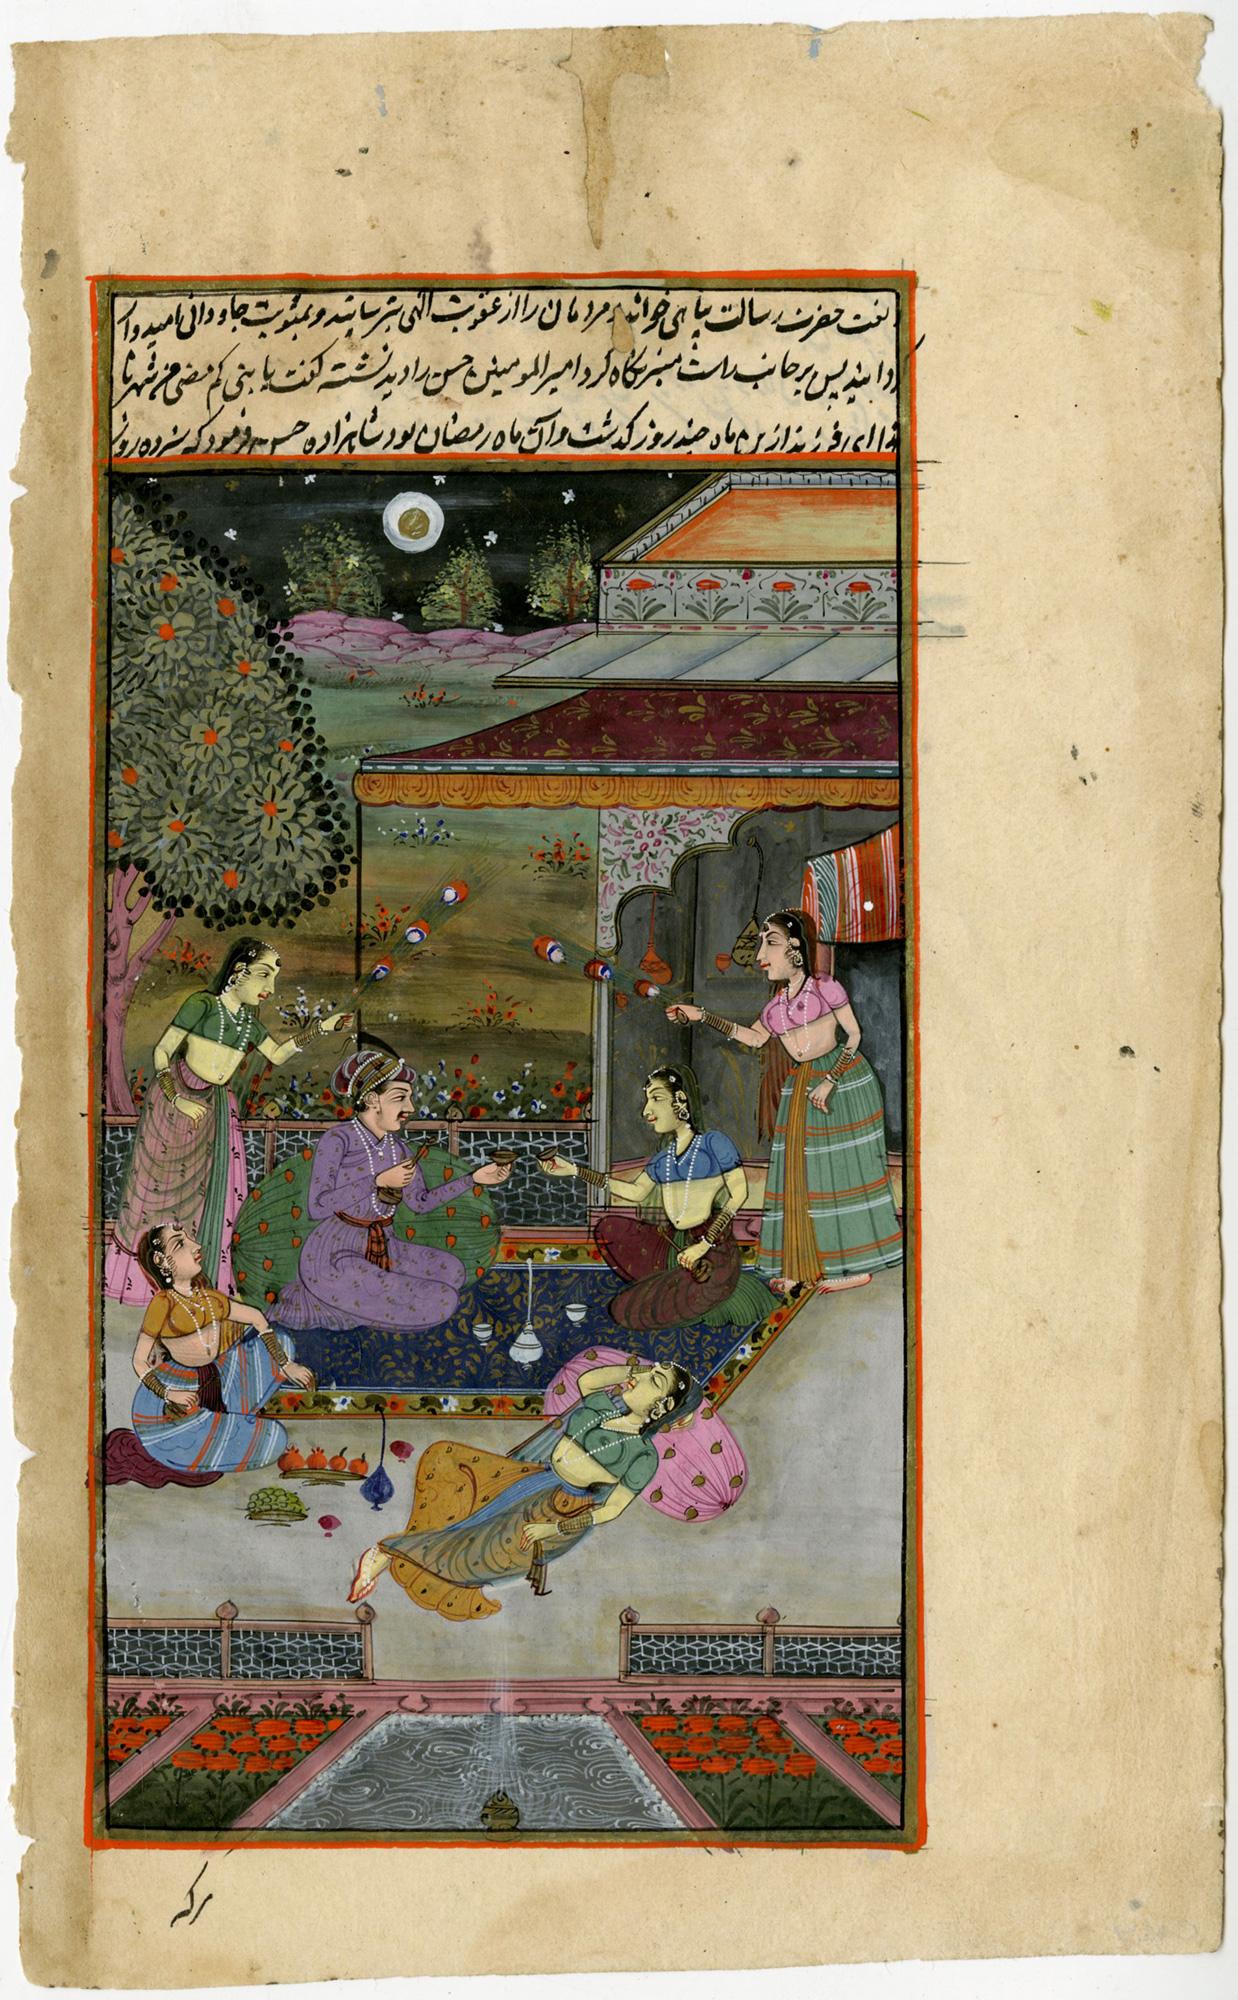 نعت حضرت رسالت پناهی خوانده مردمان را از عقوبت الهی بترسانیند و بمثوبت جاودانی امیدوار
دانیند پس بر جانب راست منبر نگاه کرد امیرالمومنین حسن را دید نشسته گفت یا بنی کم مضی من شهرنا
هذا ای فرزند ازین ماه چند روز گذشت و آن ماه رمضان بود شاهزاده حسن فرمود که سیزده روز